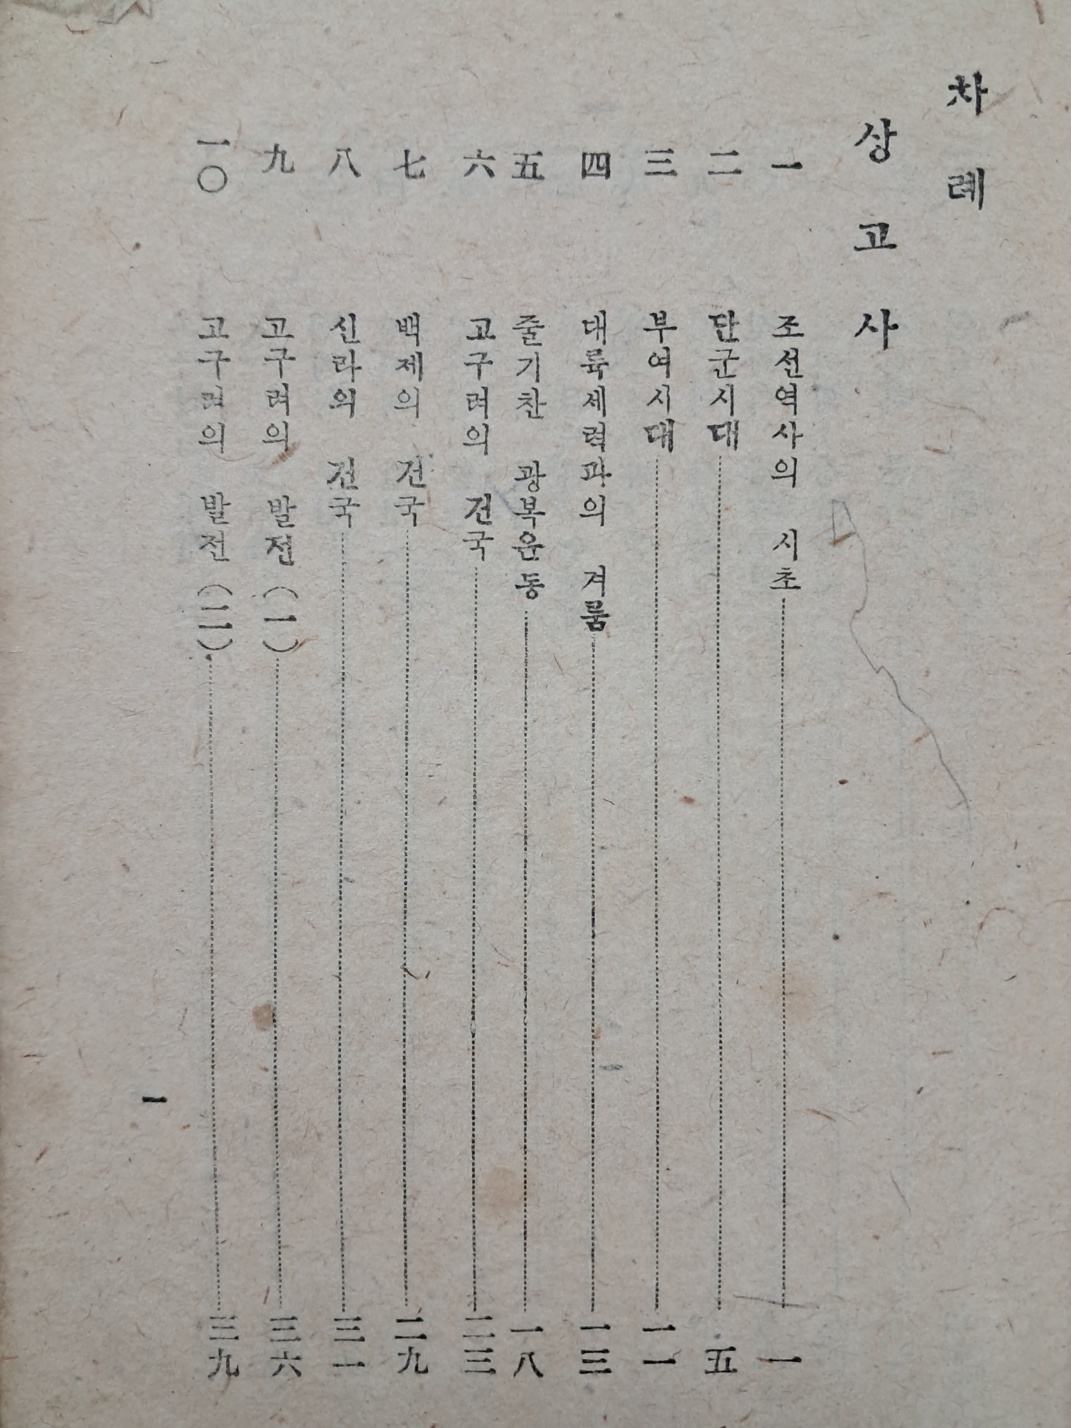 차례
상고사
一 조선역사의 시초 一
二 단군시대 五
三 부여시대 一一
四 대륙세력과의 겨룸 一三
五 줄기찬 광복운동 一八
六 고구려의 건국 二三
七 백제의 건국 二九
八 신라의 건국 三一
九 고구려의 발전(一) 三六
一〇 고구려의 발전(二) 三九
一